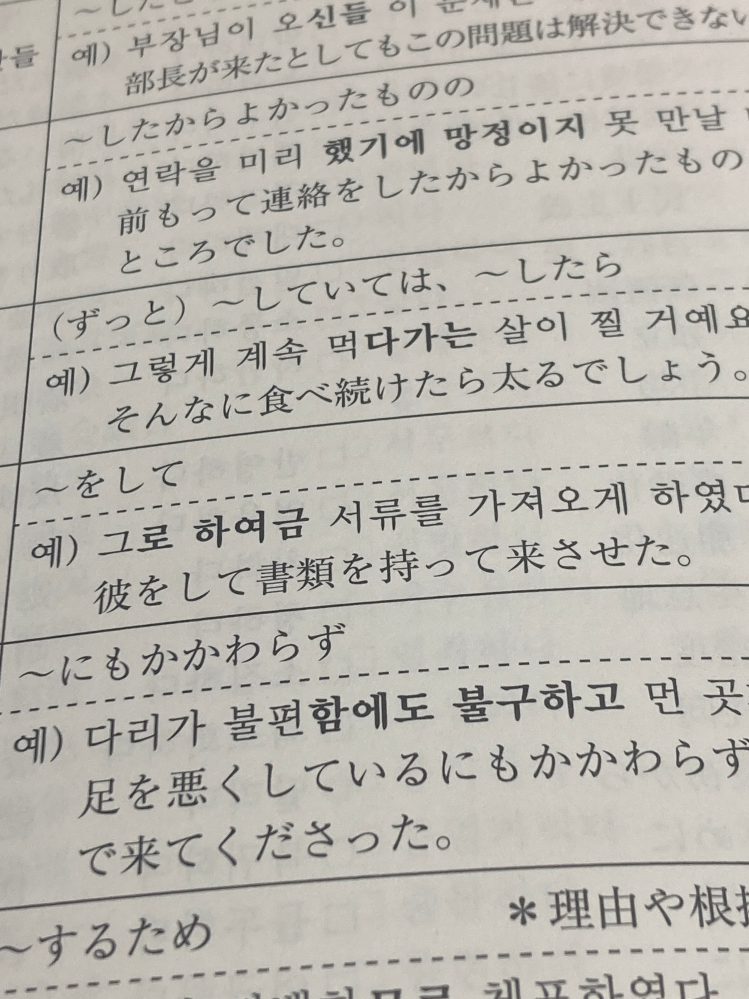 ～した
예) 부장님이 오신들 이 문제는
部長が来たとしてもこの問題は解決できない
～したからよかったものの
예) 연락을 미리 했기에 망정이지 못 만날
前もって連絡をしたからよかったもの
ところでした。
（ずっと）～していては、～したら
예) 그렇게 계속 먹다가는 살이 찔 거예요
そんなに食べ続けたら太るでしょう。
～をして
예) 그로 하여금 서류를 가져오게 하였다
彼をして書類を持って来させた。
～にもかかわらず
예) 다리가 불편함에도 불구하고 먼 곳
足を悪くしているにもかかわらず
で来てくださった。
～するため ＊理由や根拠
체포하였다